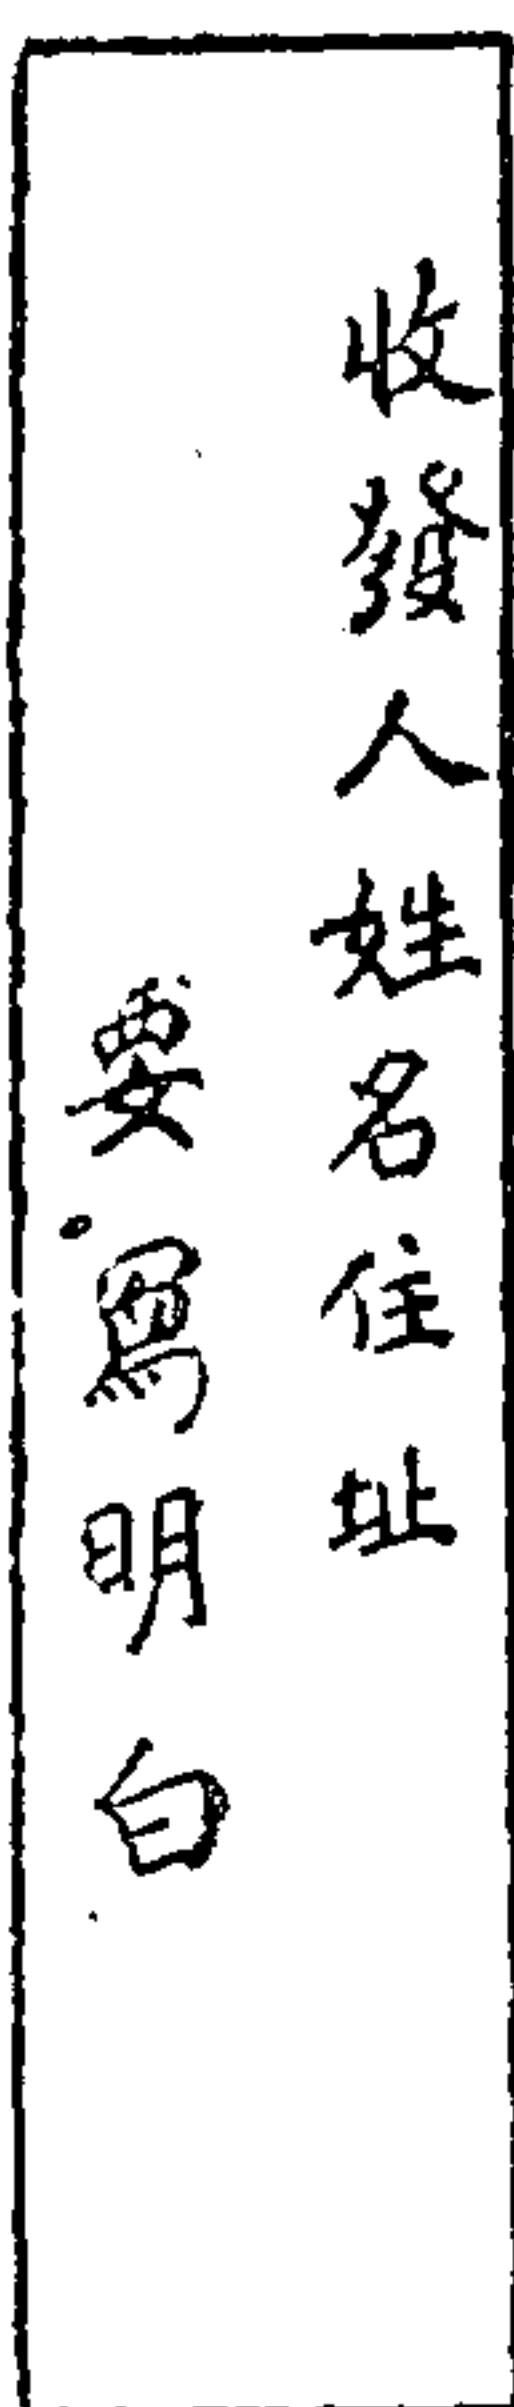 收發人姓名住址
要寫明白